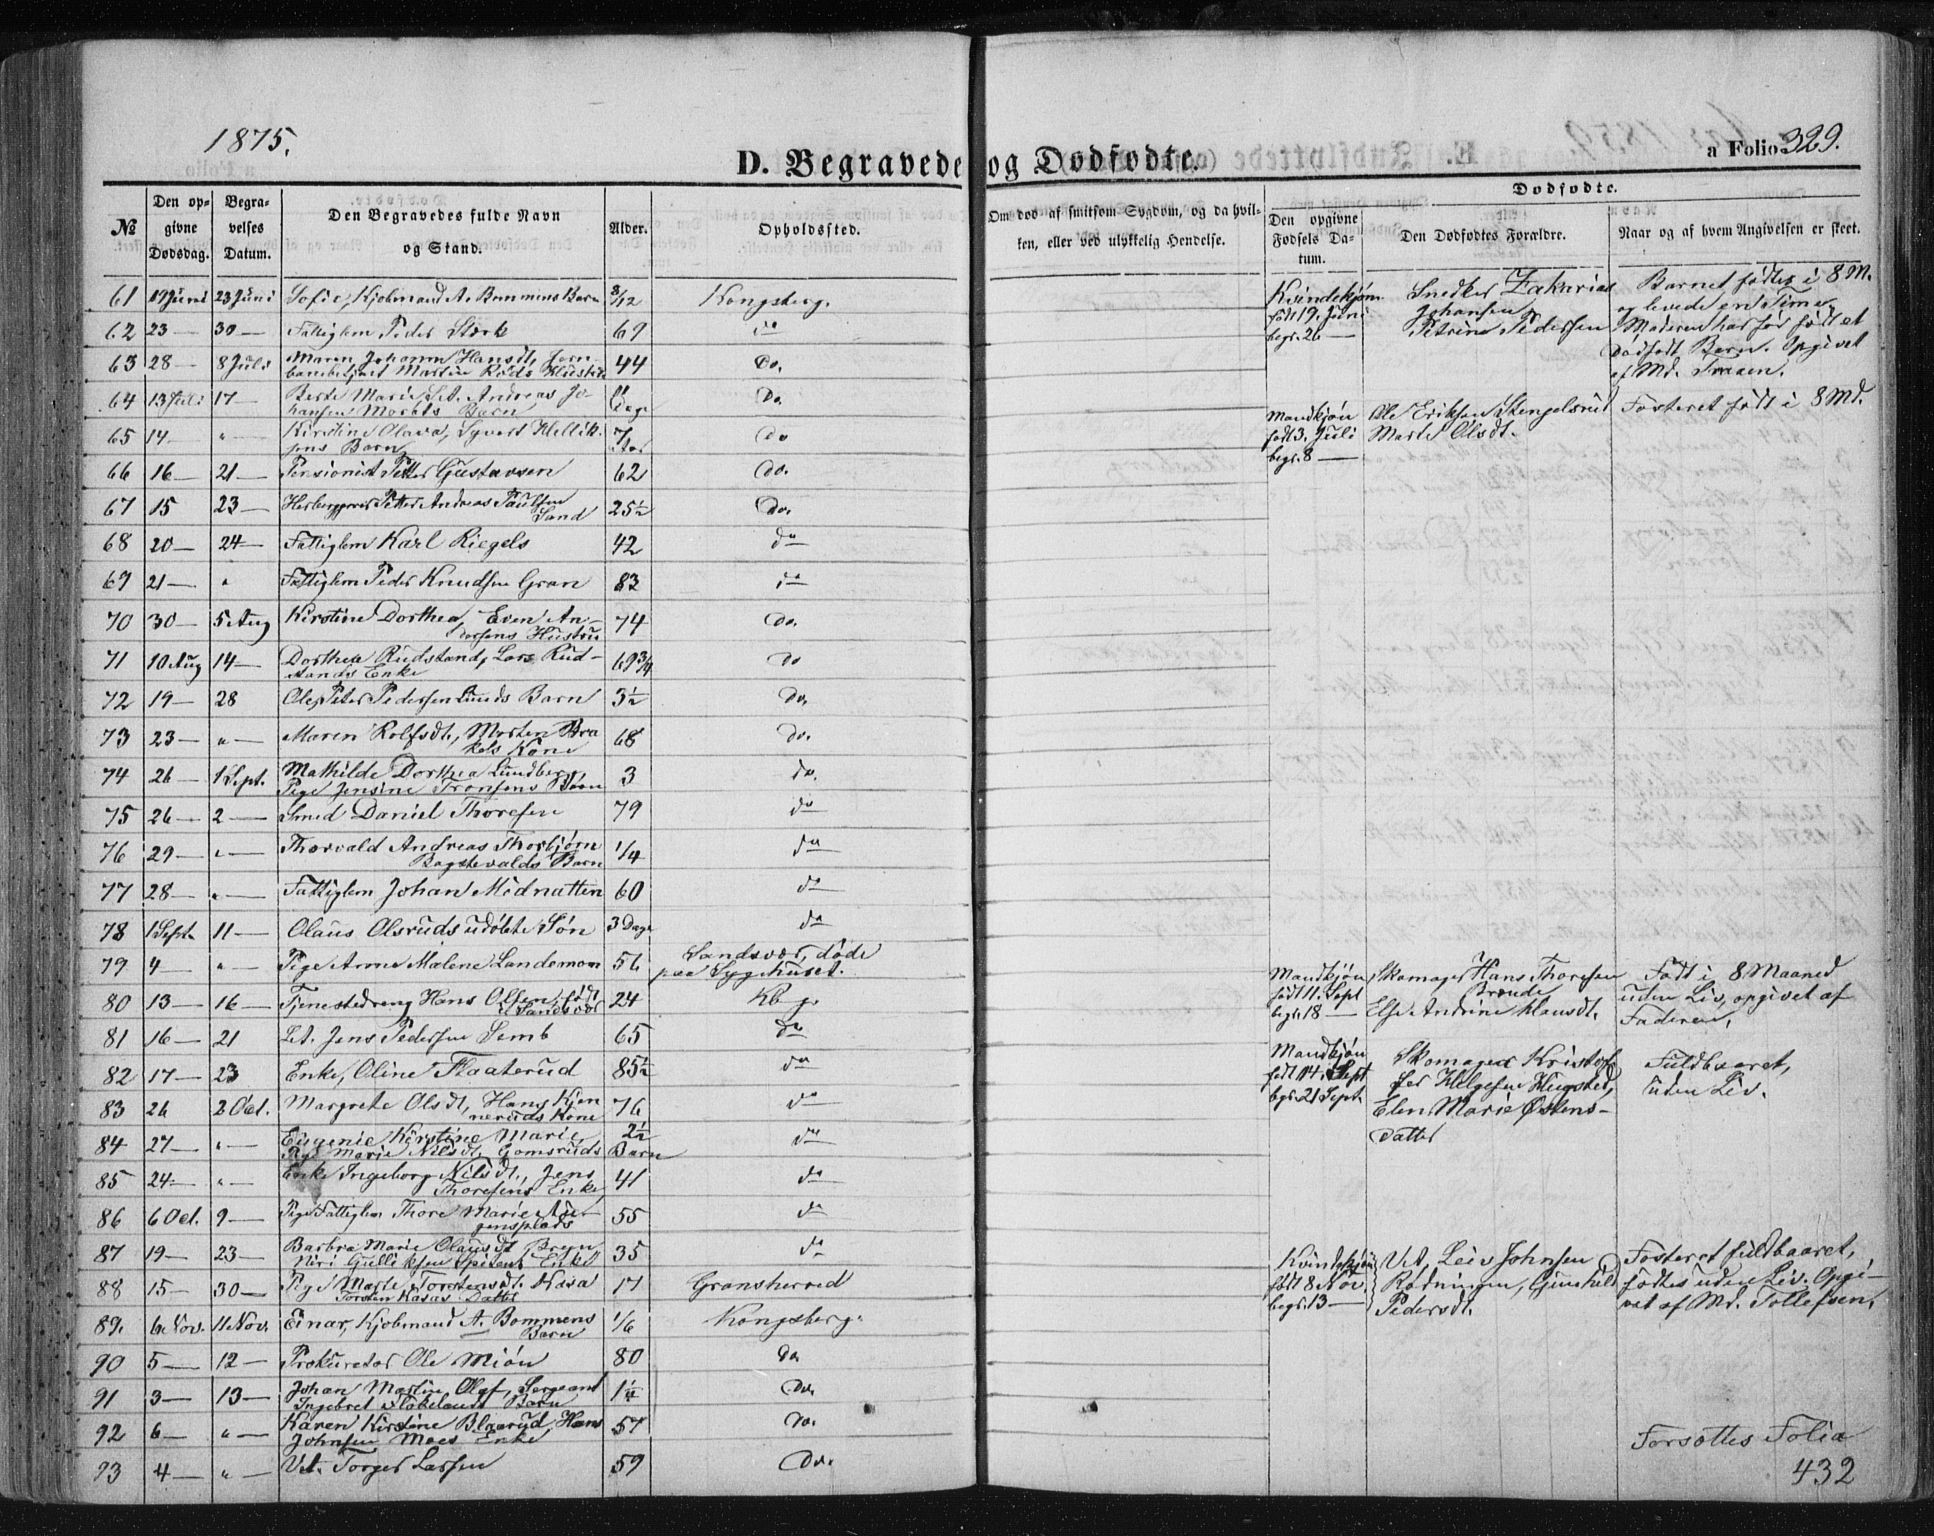 1875.
D. Begravede og Dødfødte.
a Folio 329.
№
Den opgivne Dødsdag.
Begravelses Datum.
Den Begravedes fulde Navn og Stand.
Alder.
Opholdssted.
Om død af smitsom Sygdom, og da hvilken, eller ved ulykkelig Hendelse.
Dødfødte.
Den opgivne Fødsels Datum.
Den Dødfødtes Forældre.
Naar og af hvem Angivelsen er skeet.
61 19 Juni 23 Juni Sofie, Kjøbmand A. Bommens Barn 3/12 Kongsberg.
62 23 — 30 — Fattiglem Peder Stærk 69 do
63 28 — 8 Juli Maren Johanne Hansdt, Jern-
banebetjent Martin Røds Hustru 44 Do.
64 13 Juli 17 — Berte Marie, Andreas Jo-
hansen Moráts Barn 11 Dage Do
65 14 — " — Kirstine Olava, Syvert Hellik-
sens Barn 7 Do
66 16 — 21 — Pensionist Petter Gustavsen 62 Do.
67 15 23 — Petter Andreas Paulsen
Sand 25½ Do.
68 20 — 24 — Fattiglem Karl Riegels 42 do
69 21 — " Fattiglem Peder Knudsen Gran 83 do
70 30 — 5 Aug Kirstine Dorthea, Even An-
dersens Hustru 74 Do.
71 10 Aug 14 — Dorthea Rudstand, Lars Rud-
stands Enke 69¾ Do
72 19 — 28 Ole Peter Pedersen Lunds Barn 3½ Do,
73 23 — " — Maren Rolfsdt., Morten Bra
kels Kone 68 Do.
74 26 — 1 Sept. Mathilde Dorthea Lundberg,
Pige Jensine Fronsens Barn 3 do.
75 26 — 2 — Smed Daniel Thoresen 79 do
76 29 — " — Thorvald Andreas Thorbjørn
Bagstevalds Barn 1/4 do
77 28 — " — Fattiglem Johan Midnatten 60 do
78 1 Sept. 11 — Olaus Olsruds udøbte Søn 3 Dage do
79 4 — " — Pige Anne Malene Landemoen 56 Sandsvær, døde
paa Sygehuset.
80 13 — 16 — Tjenestedreng Hans Olsen, født
i Sandsvær 24 Kbg.
81 16 — 21 Let. Jens Pedersen Semb 65 do
82 17 — 23 Enke, Oline Flaaterud 85½ do
83 26 2 Oct. Margrete Olsdt, Hans Kjen
neruds Kone 76 do
84 27 — " — Eugenie Kirstine Marie,
Pige Marie Nilsdt. Gomsruds Barn 2½ do
85 24 — " — Enke Ingeborg Nilsdt., Jens
Thoresens Enke 41 do
86 6 Oct. 9 — Pige Fattiglem Thore Marie
gensplads 55 do
87 19 — 23 — Barbra Marie Olausdt Bryn
Gulliksen Enke 35 do
88 15 — 30 — Pige Marte Torstensdt. Kasa
Torsten Kasas Datter 17 Gransherred
89. 6 Nov. 11 Nov. Einar, Kjøbmand A. Bommens
Barn 1/6 Kongsberg.
90 5 — 12 — Prokurator Ole Miøn 80 Do,
91 3 — 13 — Johan Martin Olaf, Sergeant
Ingebret Flokelandt Barn 1¼ Do.
92 6 — " — Karen Kirstine Blaarud, Hans
Johnsen Moes Enke 57 Do.
93 4 — " Vet. Torger Larsen 59 Do.
Kvindekjøn
født 19. Juni
begr. 26 —
Snedker Zakarias
Johansen,
Petrine Pedersen
Barnet fødtes i 8 M.
og levede en Time,
Moderen har før født et
Dødfødt Barn. Opgivet
af Md. Traaen.
Mandkjøn
født 3. Juli
begr. 8 —
Ole Eriksen Stengelsrud
Marte Olsdt.
Fosteret født i 8 Md.
Mandkjøn
født 11. Sept
begr. 18 —
Skomager Hans Thoresen
Braude
Else Andrine Klausdt.
Født i 8 Maaned
uden Liv, opgivet af
Faderen,
Mandkjøn
født 14. Sept
begr. 21 Sept.
Skomager Kristof-
fer Helgesen Hugsted,
Elen Marie Østens-
datter
Fuldbaaret,
uden Liv.
Kvindekjøn
født 8 Nov.
begr. 13 —
Vet, Leiv Johnsen
Rødningen, Gunhild
Pedersdt.
Fosteret fuldbaaret,
fødtes uden Liv. Opgi-
vet af Md. Tollefsen,
Forsættes Folia
432